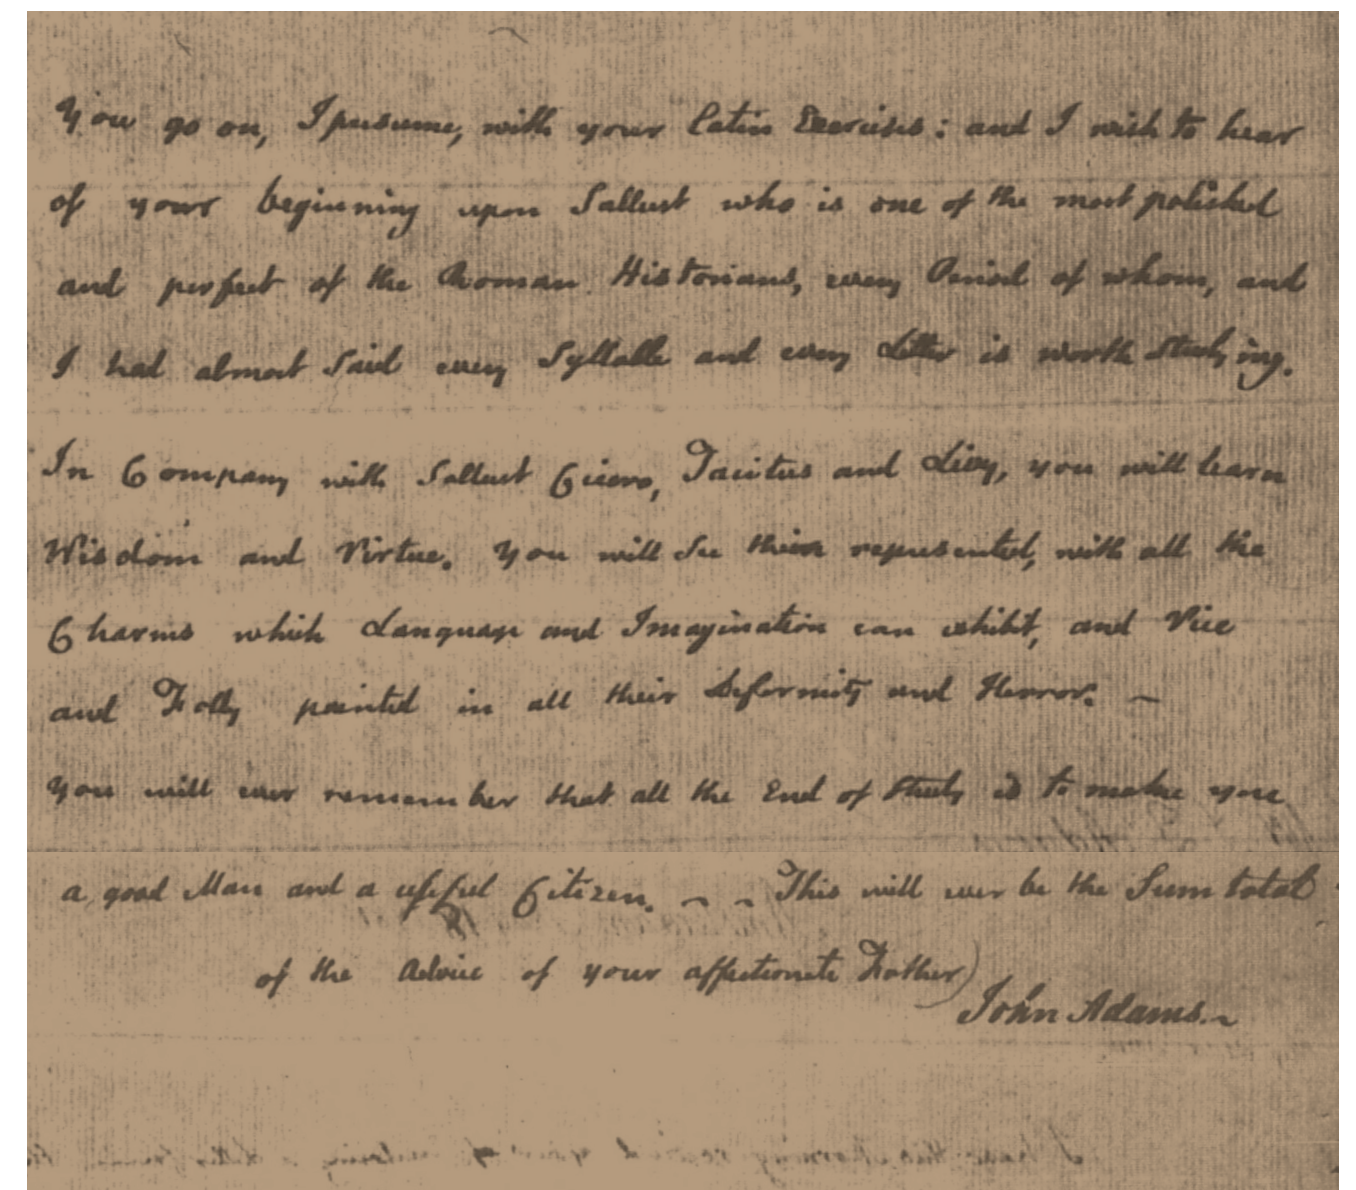 You go on, I presume, with your latin Exercises: and I wish to hear
of your beginning upon Sallust who is one of the most polished
and perfect of the Roman Historians, every Period of whom, and
I had almost Said every Syllable and every Letter is worth Studying.
In Company with Sallust Cicero, Tacitus and Livy, you will learn
Wisdom and Virtue. You will See them represented, with all the
Charms which Language and Imagination can exhibit, and Vice
and Folly painted in all their Deformity and Horror. —
You will ever remember that all the End of Study is to make you
a good Man and a useful Citizen. — — This will ever be the Sum total
of the Advice of your affectionate Father
John Adams. —